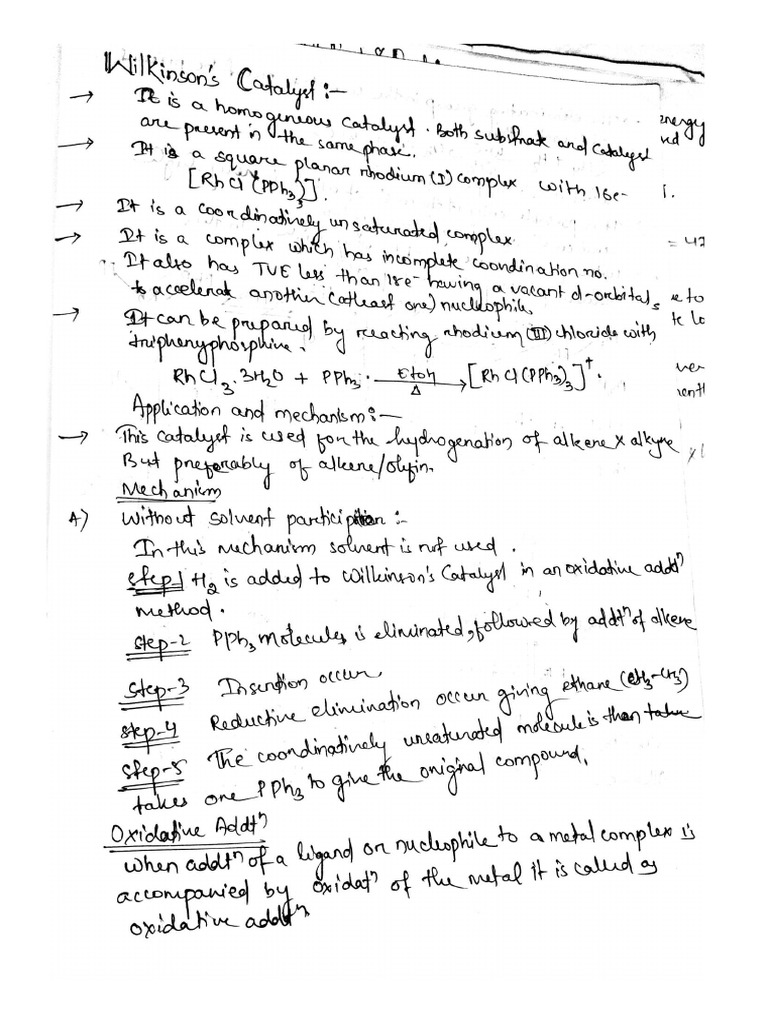 Wilkinson's Catalyst :-
→ It is a homogeneous catalyst. Both substrate and catalyst
are present in the same phase.
→ It is a square planar rhodium (I) complex with 16e-
[RhCl(PPh3)3].
→ It is a coordinatively unsaturated complex.
→ It is a complex which has incomplete coordination no.
It also has TVE less than 18e- having a vacant d-orbital,
to accelerate another (atleast one) nucleophile.
→ It can be prepared by reacting rhodium (III) chloride with
triphenyphosphine.
RhCl3.3H2O + PPh3. EtOH Δ → [RhCl(PPh3)3]+.
Application and mechanism :-
→ This catalyst is used for the hydrogenation of alkene & alkyne
But preferably of alkene/olyfin.
Mechanism
A) Without solvent participation :-
In this mechanism solvent is not used.
Step-1 H2 is added to Wilkinson's Catalyst in an oxidative addtn
method.
Step-2 PPh3 molecules is eliminated, followed by addtn of alkene
Step-3 Insertion occur
Step-4 Reductive elimination occur giving ethane (CH3-CH3)
Step-5 The coordinatively unsaturated molecule is than take
takes one PPh3 to give the original compound.
Oxidative Addtn
When addtn of a ligand or nucleophile to a metal complex is
accompanied by oxidatn of the metal it is called as
oxidative addtn
energy
= 42